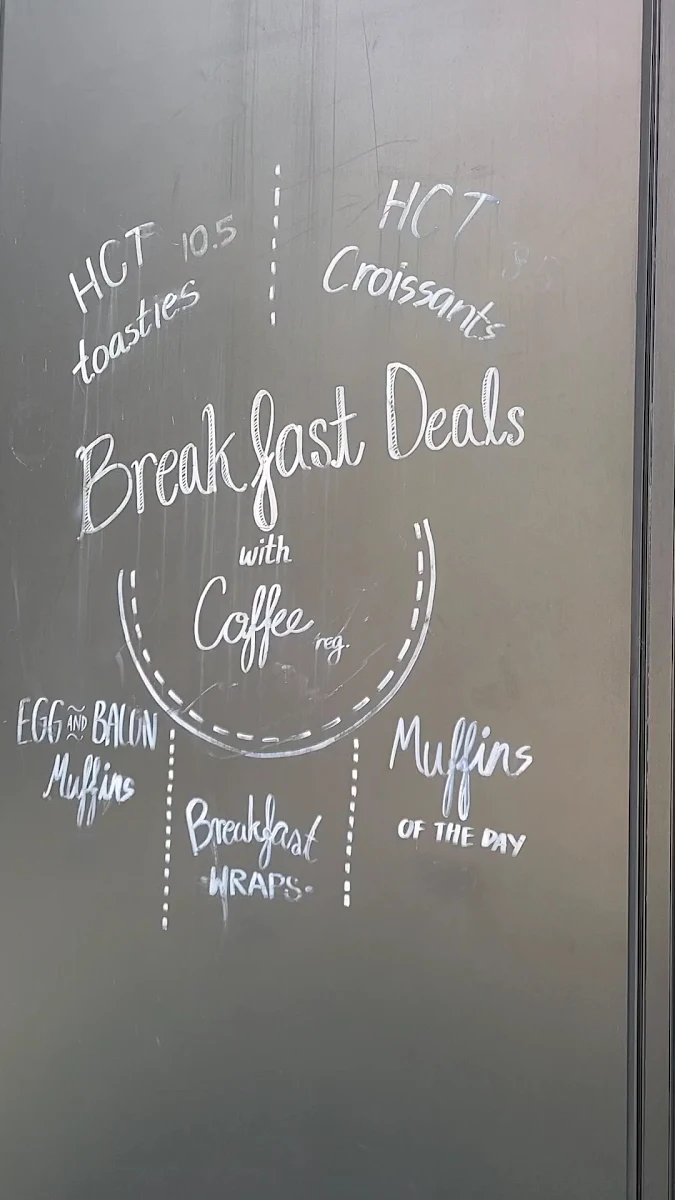 HCT 10.5
toasties
HCT
Croissants
Breakfast Deals
with
Coffee reg.
EGG AND BACON
Muffins
Breakfast
·WRAPS·
Muffins
OF THE DAY